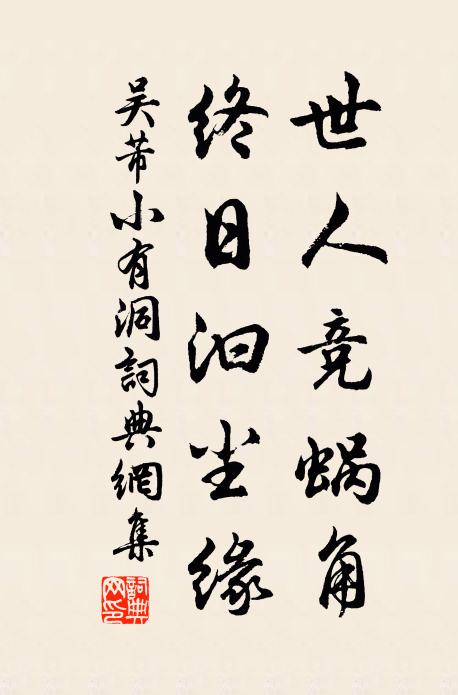 世人竞蜗角
终日汩尘缘
吴芾小有洞詞典網集
詞典网印